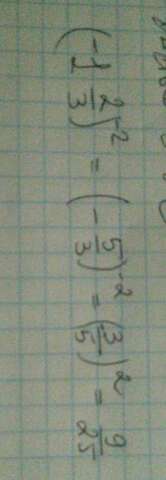 (-1 2/3)^-2 = (-5/3)^-2 = (3/5)^2 = 9/25